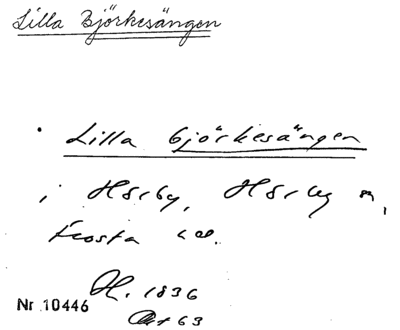 Lilla Björkesängen
Lilla Björkesängen
i Hörby, Hörby sn,
Frosta hd.
H. 1836
Nr 10446
Akt 63